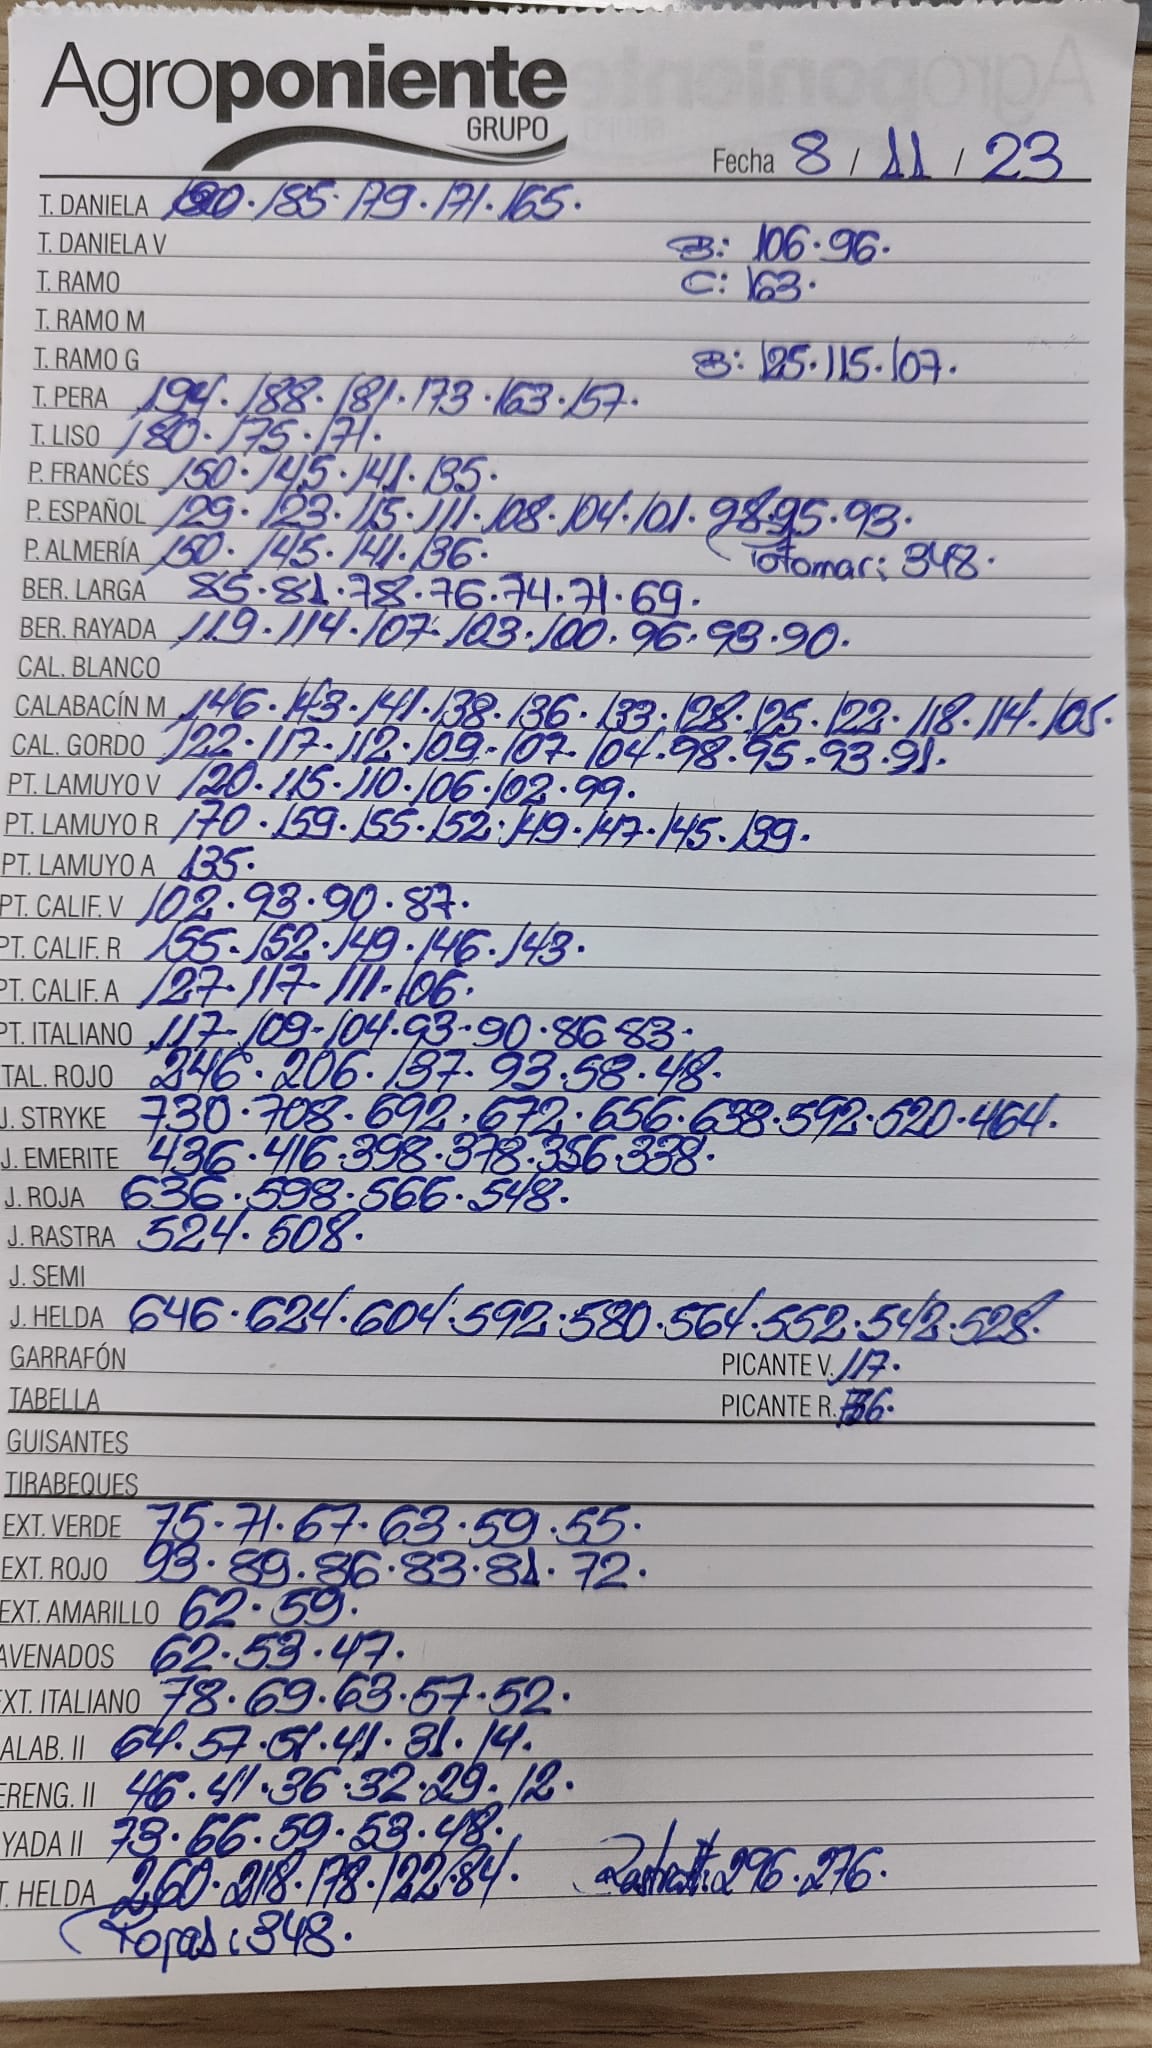 Agroponiente
GRUPO
Fecha 8 / 11 / 23
T. DANIELA 190.185.179.171.165.
T. DANIELA V B: 106.96.
T. RAMO C: 163.
T. RAMO M
T. RAMO G B: 125.115.107.
T. PERA 194.188.181.173.163.157.
T. LISO 180.175.171.
P. FRANCÉS 150.145.141.135.
P. ESPAÑOL 129.123.115.111.108.104.101.98.95.93.
P. ALMERÍA 150.145.141.136. Totomar: 348.
BER. LARGA 85.81.78.76.74.71.69.
BER. RAYADA 119.114.107.103.100.96.93.90.
CAL. BLANCO
CALABACÍN M 146.143.141.138.136.133.128.125.122.118.114.105.
CAL. GORDO 122.117.112.109.107.104.98.95.93.91.
PT. LAMUYO V 120.115.110.106.102.99.
PT. LAMUYO R 170.159.155.152.149.147.145.139.
PT. LAMUYO A 135.
PT. CALIF. V 102.93.90.87.
PT. CALIF. R 155.152.149.146.143.
PT. CALIF. A 127.117.111.106.
PT. ITALIANO 117.109.104.93.90.86.83.
TAL. ROJO 246.206.137.93.58.48.
J. STRYKE 730.708.692.672.656.638.592.520.464.
J. EMERITE 436.416.398.378.356.338.
J. ROJA 636.598.566.548.
J. RASTRA 524.508.
J. SEMI
J. HELDA 646.624.604.592.580.564.552.542.528.
GARRAFÓN PICANTE V. 117.
TABELLA PICANTE R. 136.
GUISANTES
TIRABEQUES
EXT. VERDE 75.71.67.63.59.55.
EXT. ROJO 93.89.86.83.81.72.
EXT. AMARILLO 62.59.
AVENADOS 62.53.47.
EXT. ITALIANO 78.69.63.57.52.
ALAB. II 64.57.51.41.31.14.
ERENG. II 46.41.36.32.29.12.
YADA II 73.66.59.53.48.
T. HELDA 260.218.178.122.84. 296.276.
Rojas: 348.